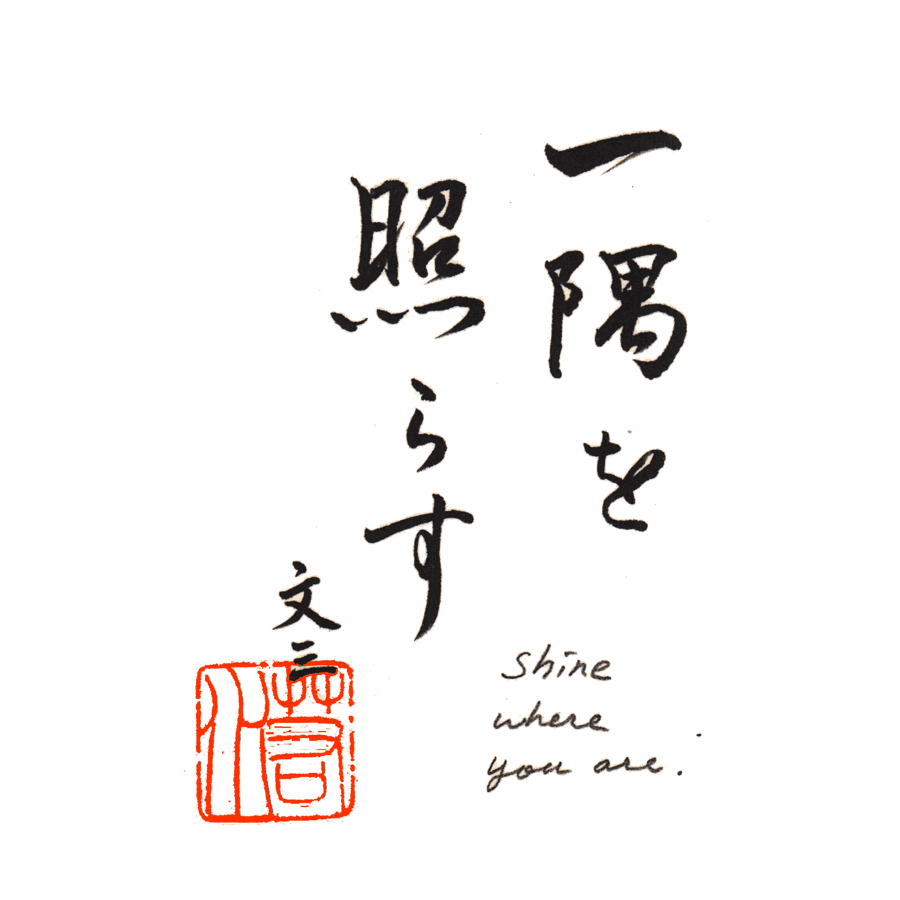 一隅を
照らす
文三
Shine
where
you are.